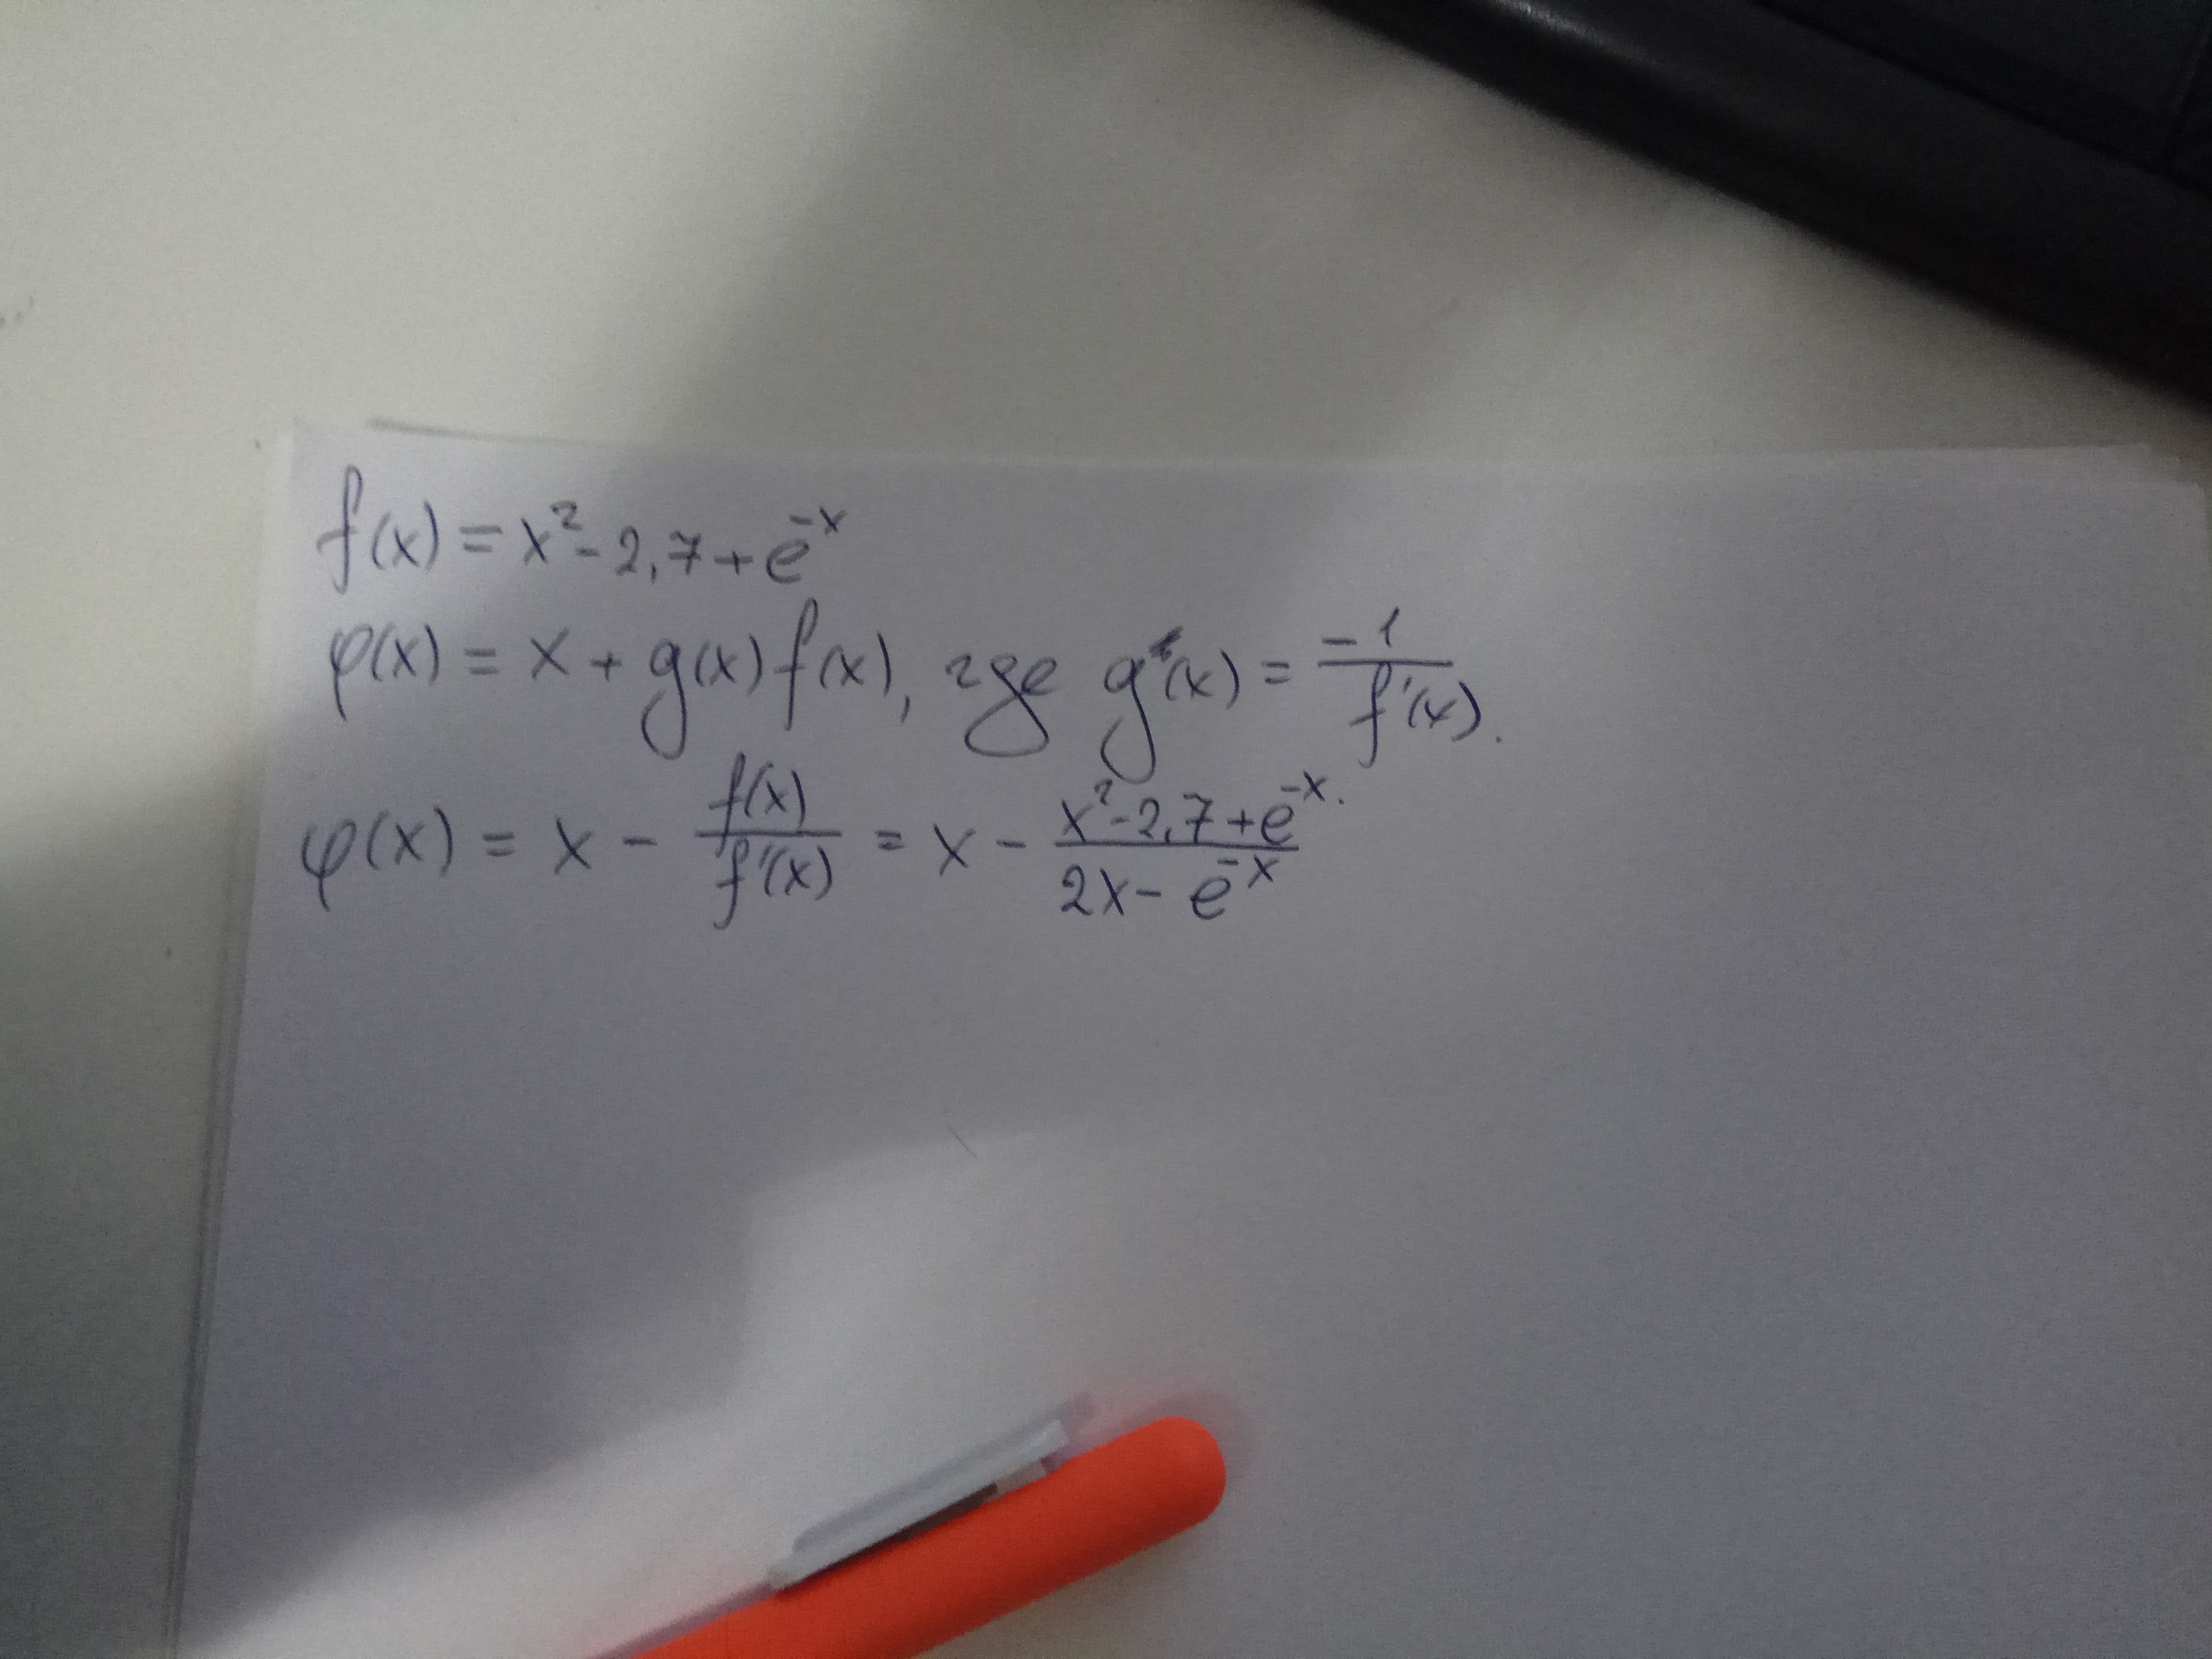 f(x) = x² - 2,7 + e⁻ˣ
φ(x) = x + g(x) f(x), где g(x) = -1/f'(x).
φ(x) = x - f(x)/f'(x) = x - (x² - 2,7 + e⁻ˣ)/(2x - e⁻ˣ)